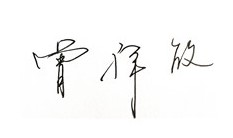 曾祥敏